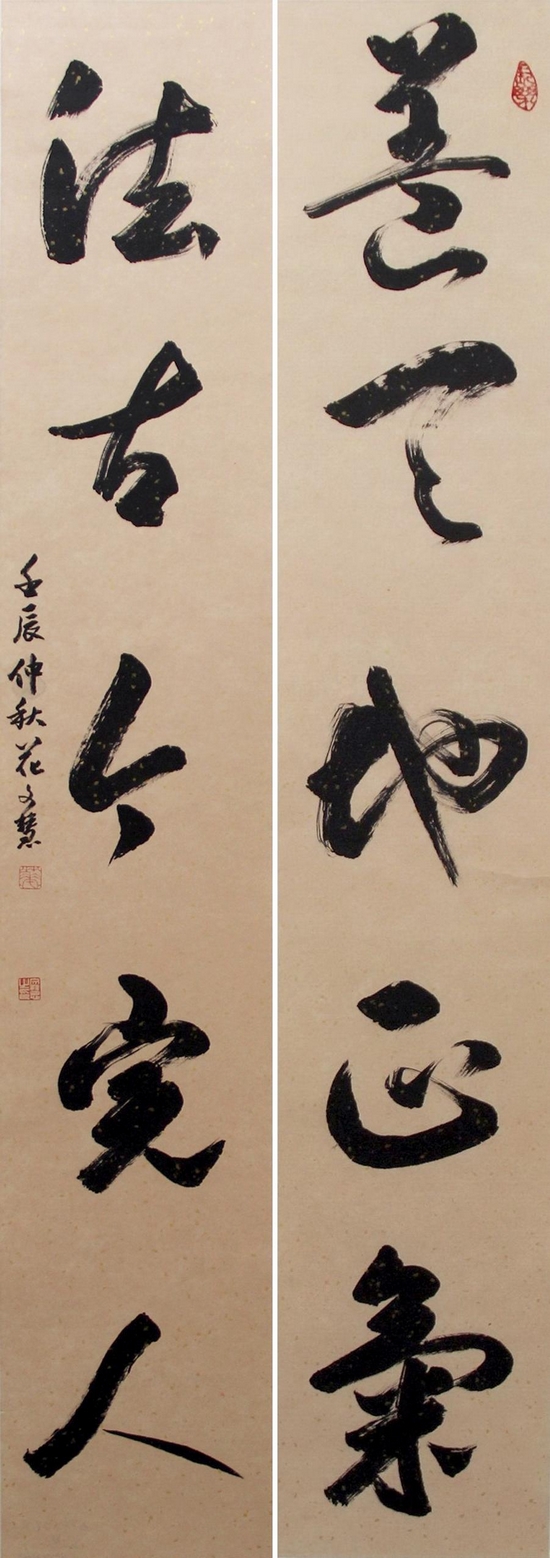 養天地正氣
法古今完人
壬辰仲秋花文慧